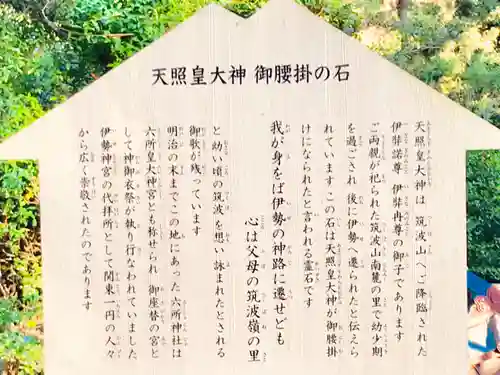 天照皇大神 御腰掛の石
天照皇大神は 筑波山へご降臨された
伊弉諾尊 伊弉冉尊の御子であります
ご両親が祀られた筑波山南麓の里で幼少期
を過ごされ 後に伊勢へ遷られたと伝えら
れています この石は天照皇大神が御腰掛
けになられたと言われる霊石です
我が身をば伊勢の神路に遷せども
心は父母の筑波嶺の里
と幼い頃の筑波を想い 詠まれたとされる
御歌が残っています
明治の末までこの地にあった六所神社は
六所皇大神宮とも称せられ 御座替の宮と
して神御衣祭が執り行なわれていました
伊勢神宮の代拝所として関東一円の人々
から広く崇敬されたのであります